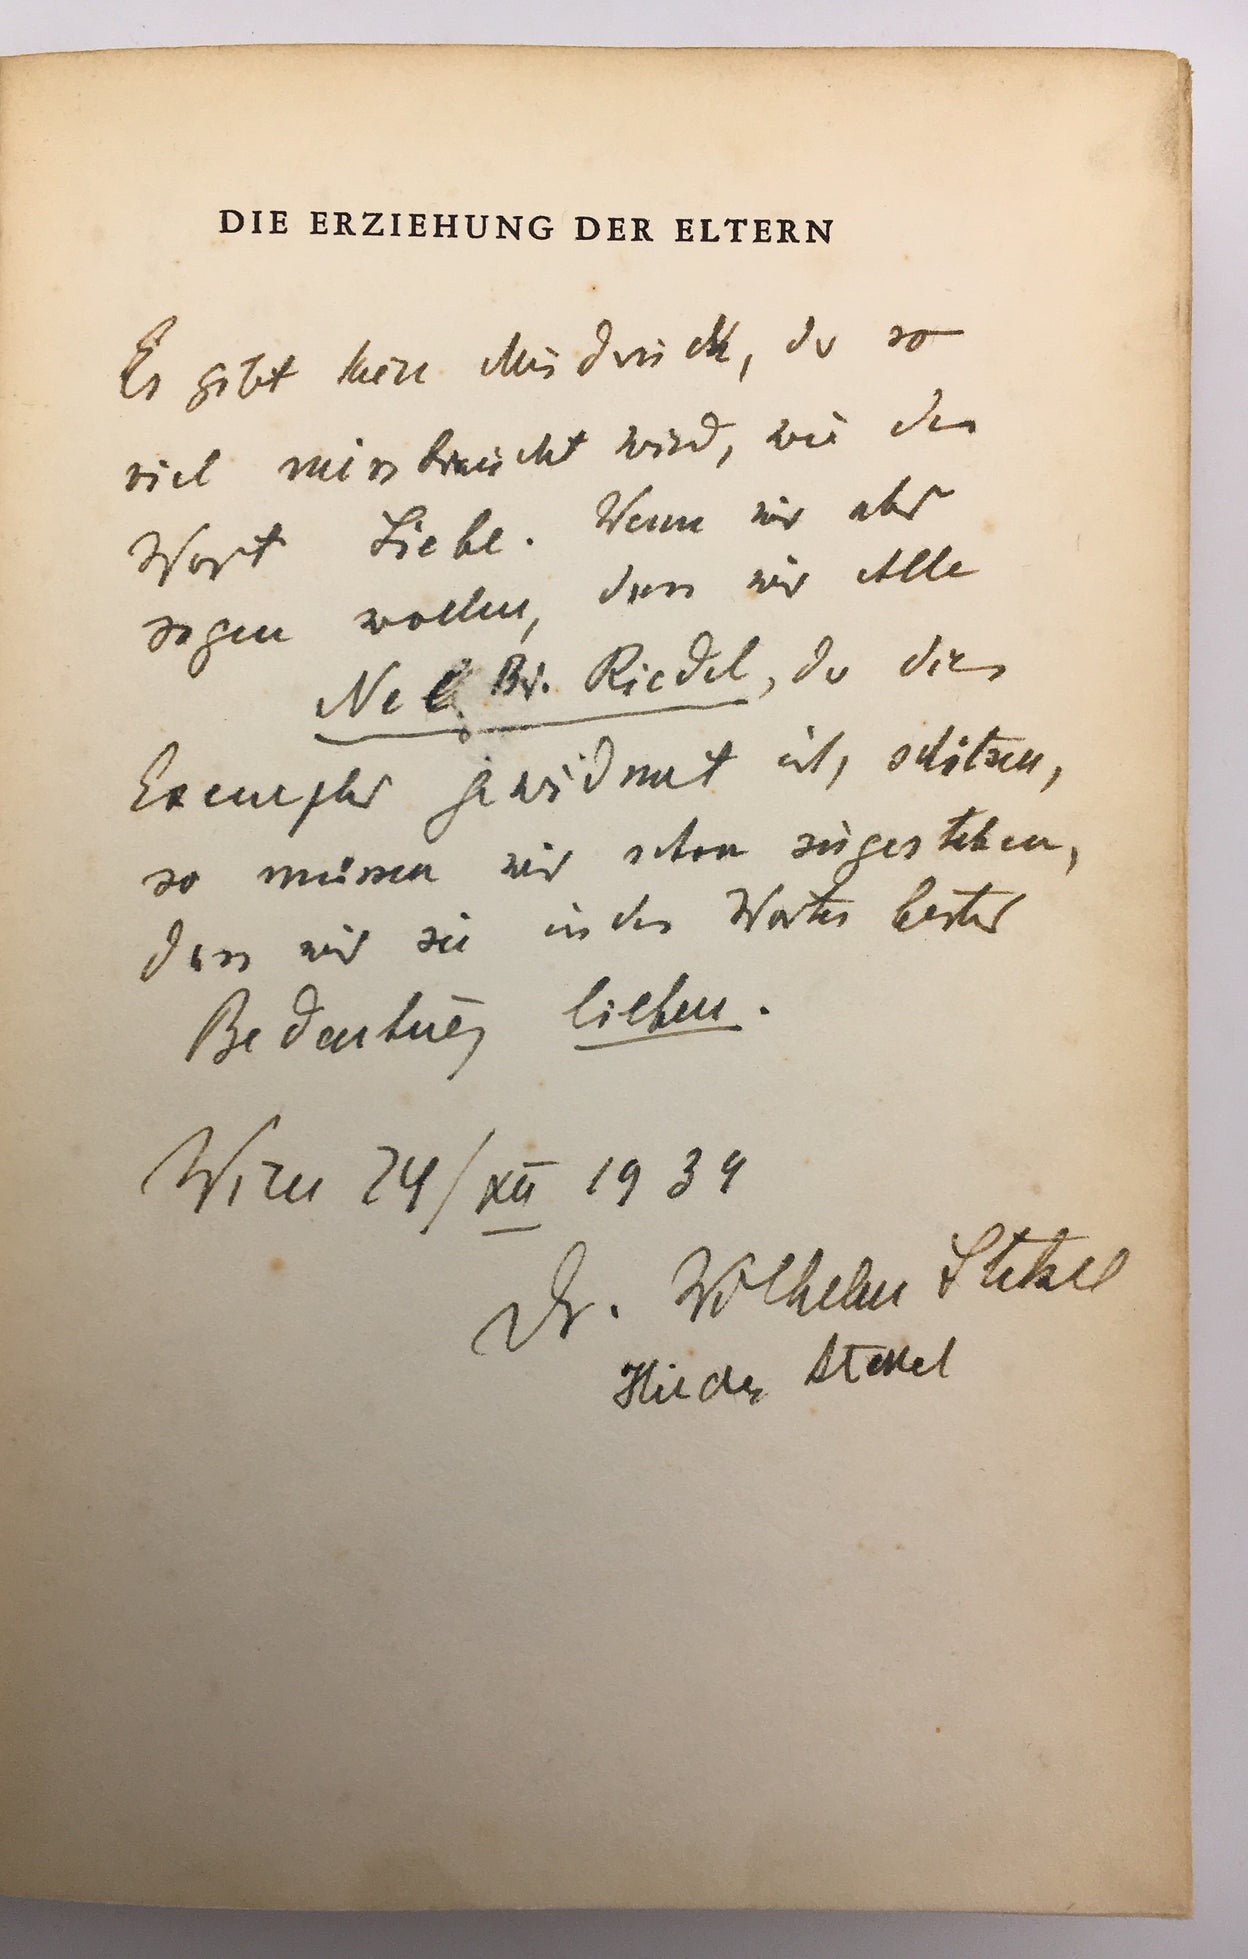 DIE ERZIEHUNG DER ELTERN
Es gibt kein Ausdruck, der so
viel missbraucht wird, wie das
Wort Liebe. Wenn wir aber
sagen wollen, dass wir Alle
Br. Riedel, der dies
Exemplar gewidmet ist, schätzen,
so müssen wir schon zugestehen,
dass wir sie in des Wortes bester
Bedeutung lieben.
Wien 24/XII 1934
Dr. Wilhelm Stekel
Hilda Stekel